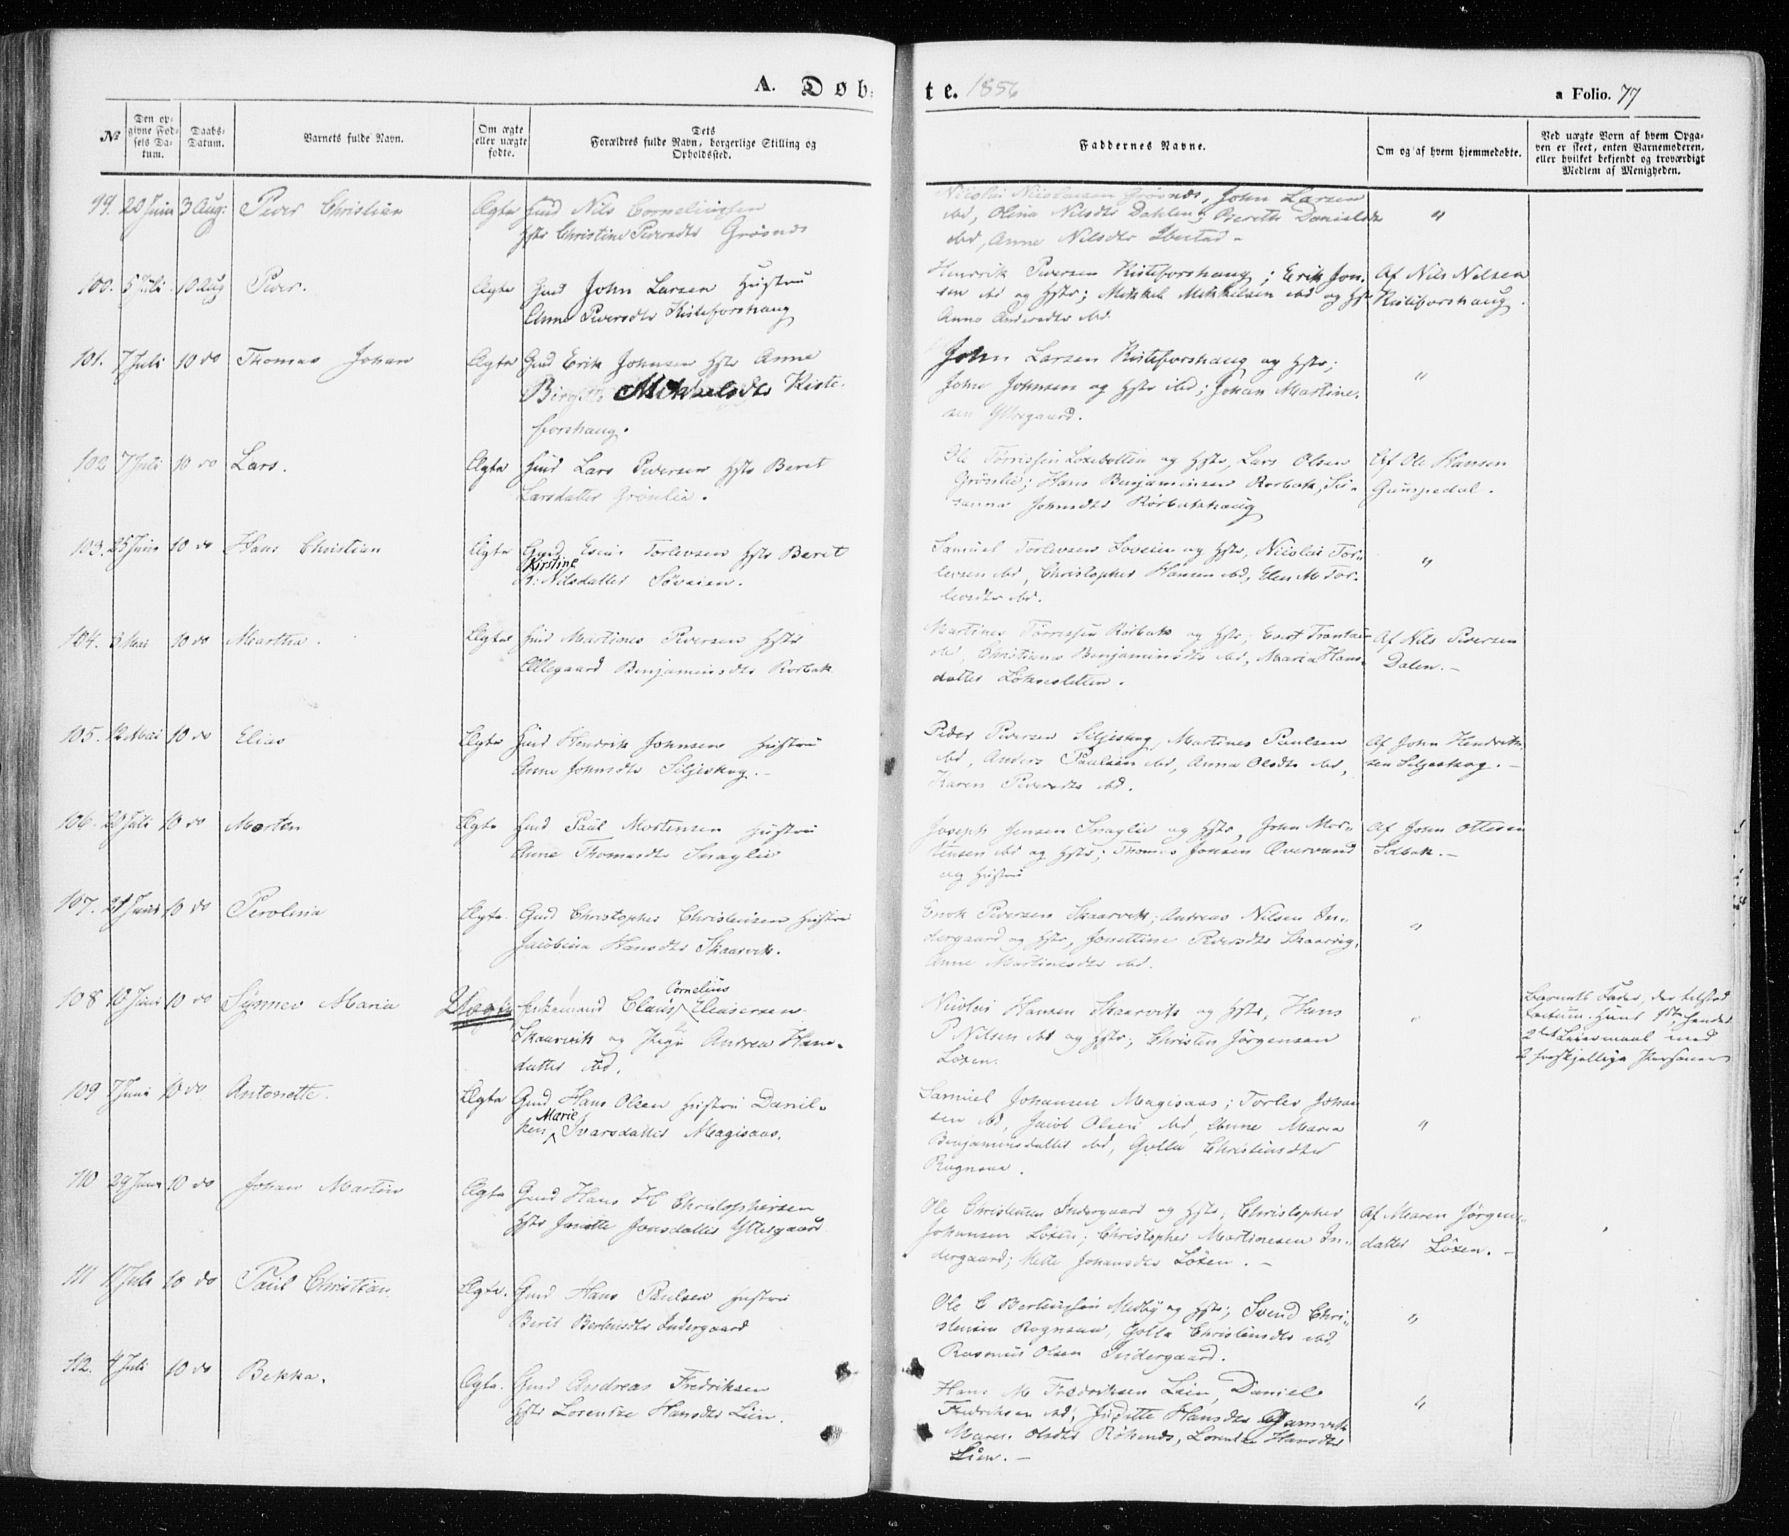 A. Døb-
te. 1856
a Folio. 77
№
Den op-
givne Fød-
sels Da-
tum.
Daabs-
Datum.
Barnets fulde Navn.
Om ægte
eller uægte
fødte.
Dets
Forældres fulde Navn, borgerlige Stilling og
Opholdssted.
Faddernes Navne.
Om og af hvem hjemmedøbte.
Ved uægte Børn af hvem Opga-
ven er skeet, enten Barnemoderen,
eller hvilket bekjendt og troværdigt
Medlem af Menigheden.
99. 20 Juni 3 Aug: Peder Christian Ægte Gmd Nils Corneliussen
Hstr Christine Pedersdtr Grøsnes
Nicolai Nicolaisen Grøsnes, John Larsen
ibd, Olena Nilsdtr Dahlen, Bereth Danielsdtr
ibd, Anne Nilsdtr Ibestad - "
100. 5 Juli 10 Aug Peder. Ægte Gmd John Larsen Hustru
Anne Pedersdtr Kisteforshaug
Henrik Pedersen Kisteforshaug; Erik Jon-
sen ibd og Hstr; Mikkel Mikkelsen ibd og Hstr
Anne Andersdtr ibd.
Af Nils Nilsen
Kisteforshaug.
101. 7 Juli 10 do Thomas Johan Ægte Gmd Erik Johnsen Hstr Anne
Birgitte Mikkelsdtr Kiste-
forshaug.
John Larsen Kisteforshaug og Hstr;
John Johnsen og Hstr ibd; Johan Martine-
sen Yttergaard. "
102 7 Juli 10 do Lars. Ægte Gmd Lars Pedersen Hstr Beret
Larsdatter Grønlie.
Ole Tørrissen Loxebotten og Hstr, Lars Olsen
Grønlie; Hans Benjaminsen Rørbak, Su-
sanna Johnsdtr Rørbakhaug
Af Ole Hansen
Gumpedal.
103. 25 Juni 10 do Hans Christian Ægte Gmd Esaias Torlevsen Hstr Beret
Kirstine
K: Nilsdatter Søveien.
Samuel Torlevsen Søveien og Hstr, Nicolai Tor-
levsen ibd, Christopher Hansen ibd, Elen M Tor-
levsdtr ibd. "
104. Mai 10 do Martha. Ægte Gmd Martines Pedersen Hstr
Ollegaard Benjaminsdtr Rørbak
Martines Tørrissen Rørbak og Hstr;
ibd, Christiana Benjaminsdtr ibd, Maria Hans-
datter Løksesletten.
Af Nils Pedersen
Dalen. -
105. 12 Mai 10 do Elias Ægte Gmd Hendrik Johnsen Hustru
Anne Johnsdtr Siljeskog. -
Peder Pedersen Siljeskog, Martines Paulsen
ibd, Anders Paulsen ibd, Anna Olsdtr ibd,
Karen Pedersdtr ibd.
Af John Hendrik-
sen Siljeskog. -
106. 20 Juli 10 do Morten Ægte Gmd Paul Mortensen Hustru
Anne Thomasdtr Snaglie
Joseph Jensen Snaglie og Hstr, John Mor-
tensen ibd og Hstr; Thomas Jonsen Qvervand
og Hustru
Af John Ottesen
Selbak. -
107. 21 Juni 10 do Perolina Ægte. Gmd Christopher Christensen Hustru
Jacobina Hansdtr Skaarvik.
Enok Pedersen Skaarvik; Andreas Nilsen In-
dergaard og Hstr, Jonettine Pedersdtr Skaarvig,
Anne Martinesdtr ibd. "
108 10 Juni 10 do Synnev Maria Uægte Enkemand Claus Eliasersen
Cornelius
Skaarvik og Pige Andrea Hans-
datter ibd.
Nicolai Hansen Skaarvik og Hstr, Hans
P Nilsen ibd og Hstr; Christen Jørgensen
Løxen. "
Barnets Fader, der tilstod
Factum. Hans 1ste hendes
2det Leiermaal med
2 forskjellige Personer
109 7 Juni 10 do Antonette. Ægte Gmd Hans Olsen Hustru Daniel-
Marie
ken Ivarsdatter Magisaas.
Samuel Johansen Magisaas; Torlev Johan-
sen ibd, Jacob Olsen ibd, Anne Maria
Benjaminsdatter ibd, Golla Christensdtr
Rognsaa. "
110 29 Juni 10 do Johan Martin Ægte Gmd Hans H Christophersen
Hstr Janette Jonsdatter Yttergaard
Ole Christensen Indergaard og Hstr; Christopher
Johansen Løxen; Christopher Martinesen In-
dergaard; Mette Johansdtr Løxen. -
Af Maren Jørgens-
datter Løxen. -
111 11 Juli 10 do Paul Christian Ægte. Gmd Hans Paulsen Hustru
Berit Berteusdtr Indergaard
Ole C Berteussen Medby og Hstr; Svend Chri-
stensen Rognsaa, Golla Christensdtr ibd,
Rasmus Olsen Indergaard. "
112. 4 Juli 10 do Bekka. Ægte. Gmd Andreas Fredriksen
Hstr Lorentze Hansdtr Lien.
Hans M Fredriksen Lien, Daniel
Fredriksen ibd, Juditte Hansdtr Gamvik
Maren Olsdtr Røkenes, Lorentza Hansdtr
Lien. - "